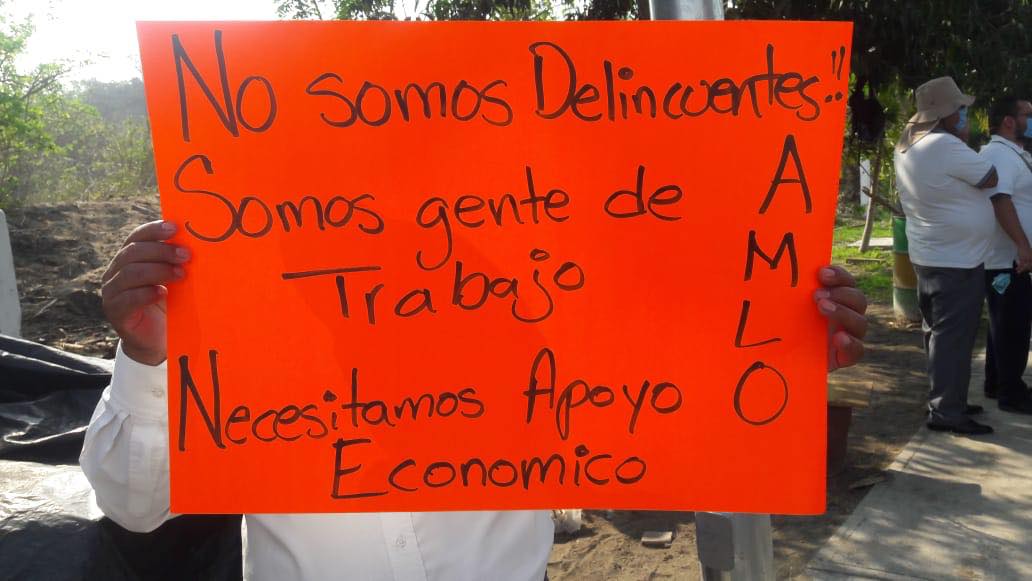 No somos Delincuentes!!
Somos gente de
Trabajo
Necesitamos Apoyo
Economico
AMLO